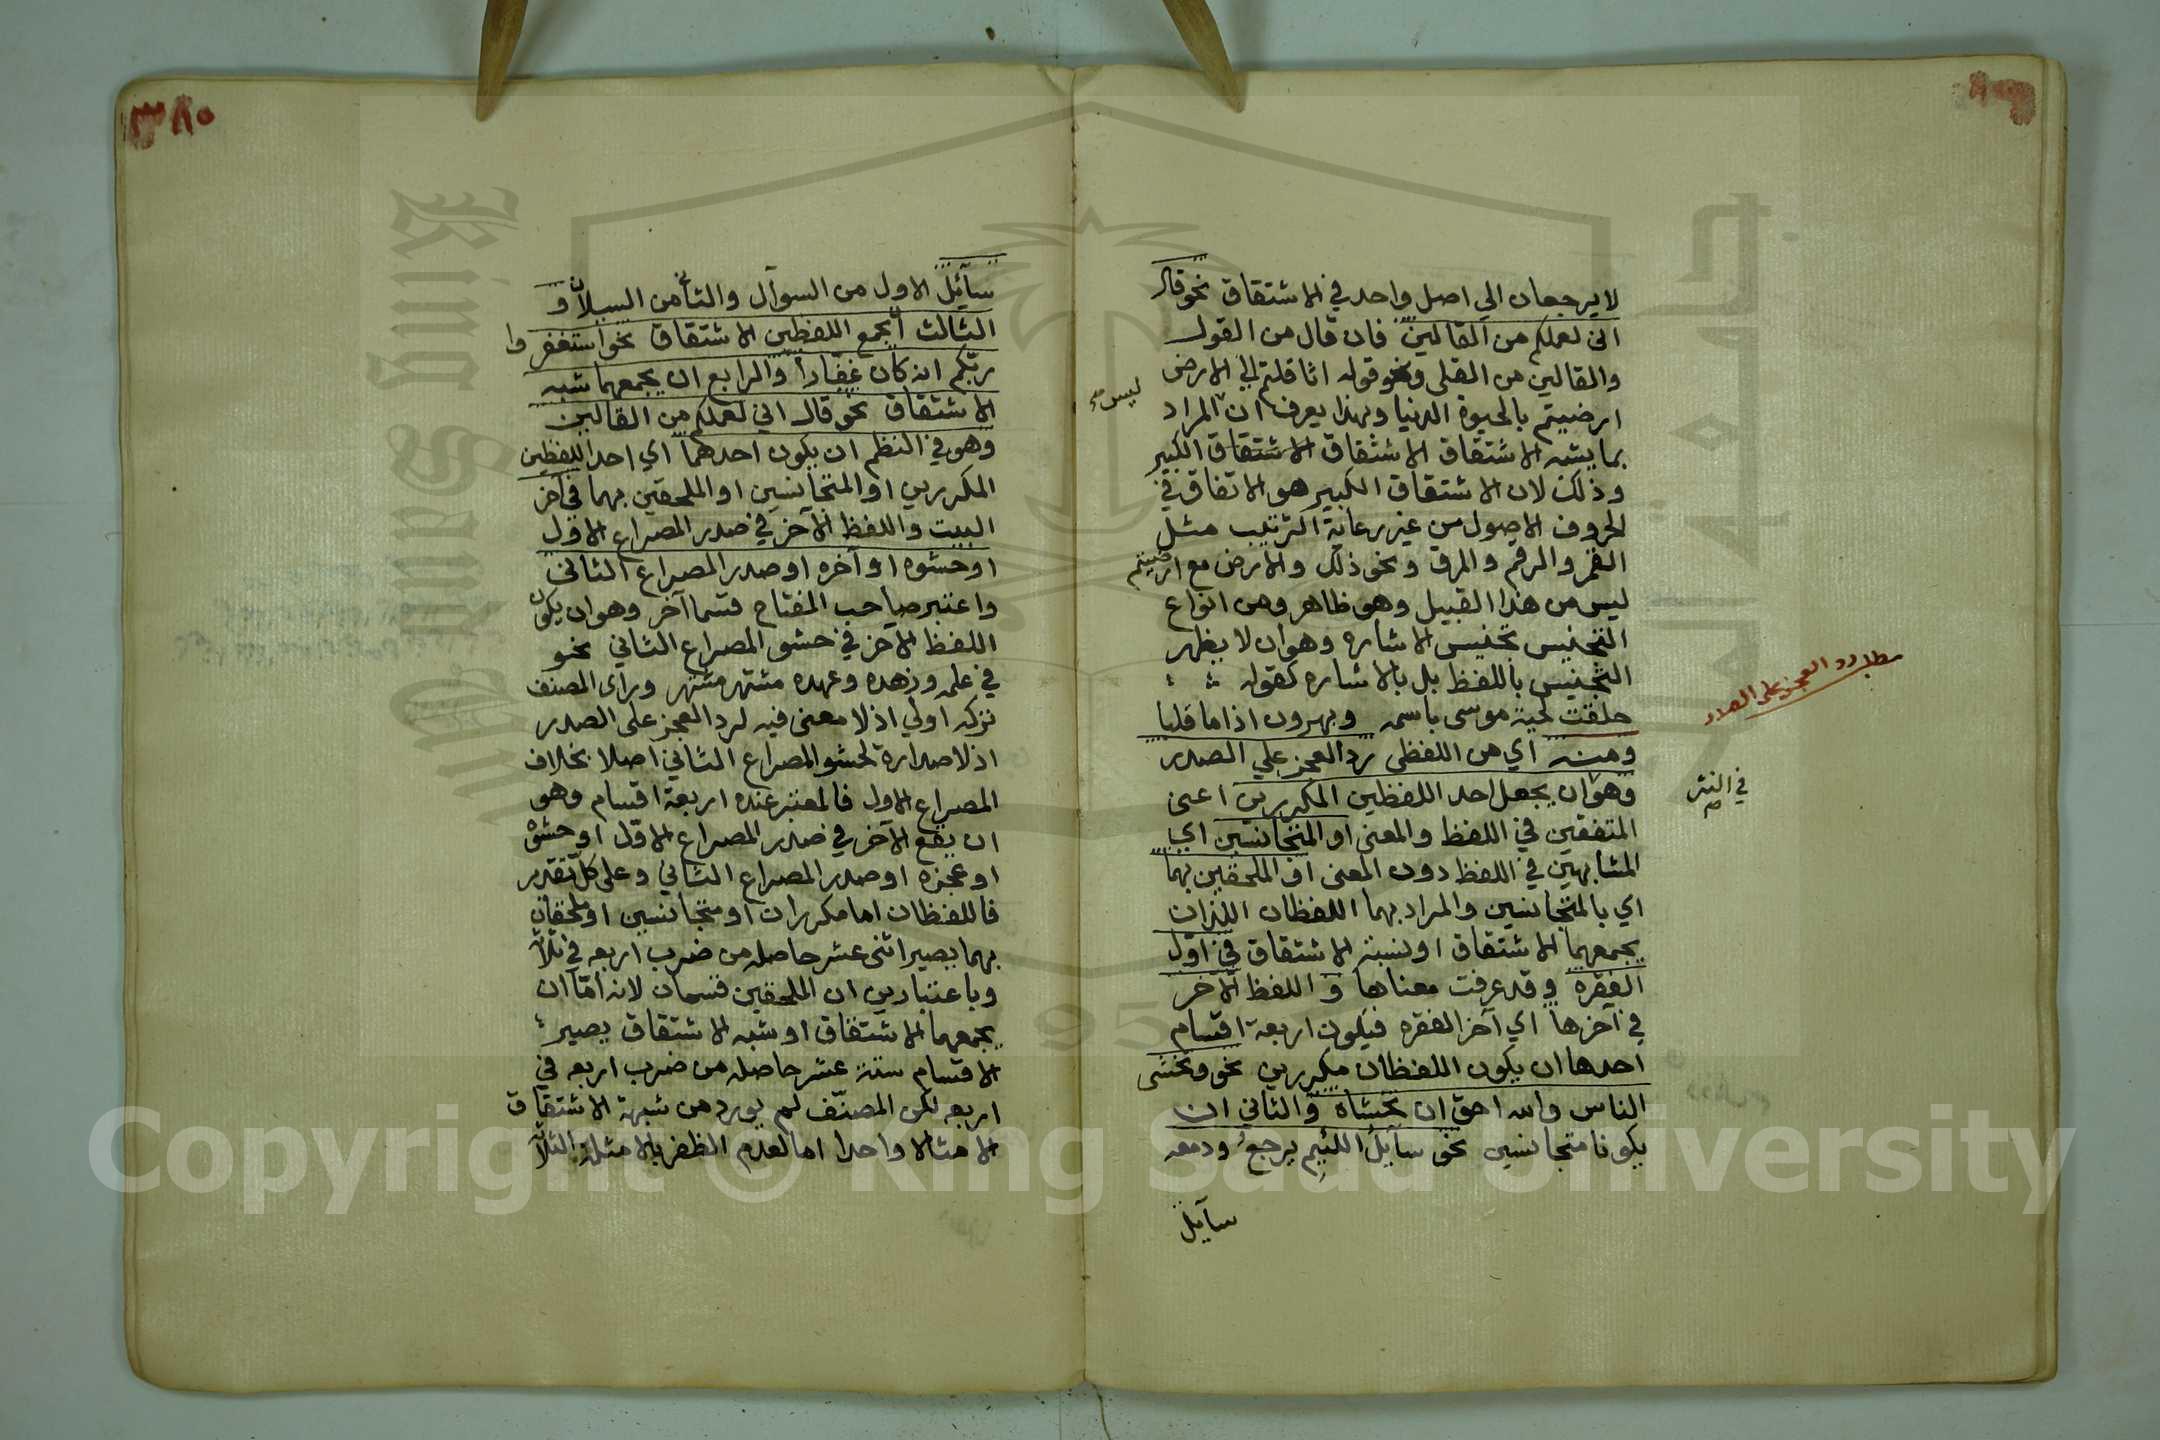 لا يرجعان الي اصل واحد في الاشتقاق نحو قال
اني لعملكم من القالين فان قال من القول
والقالين من القلى ونحو قوله اثاقلتم الي الارض
ارضيتم بالحيوة الدنيا وبهذا يعرف ان المراد
ليس
بما يشبه الاشتقاق الاشتقاق الاشتقاق الكبير
وذلك لان الاشتقاق الكبير هو الاتفاق في
الحروف الاصول من غير رعاية الترتيب مثل
القمر والرقم والمرق ونحو ذلك والارض مع ارضيتم
ليس من هذا القبيل وهو ظاهر ومن انواع
التجنيس تجنيس الاشاره وهو ان لا يظهر
التجنيس باللفظ بل بالاشاره كقوله
حلقت لحية موسى باسمه وبهرون اذا ما قلبا
مطلب رد العجز على الصدر
ومنه اي من اللفظي رد العجز علي الصدر
في النثر
وهو ان يجعل احد اللفظين المكررين اعني
المتفقين في اللفظ والمعنى او المتجانسين اي
المتشابهين في اللفظ دون المعنى او الملحقين بهما
اي بالمتجانسين والمراد بهما اللفظان اللذان
يجمعهما الاشتقاق او شبه الاشتقاق في اوّل
الفقره وقد عرفت معناها و اللفظ الآخر
في آخرها اي آخر الفقره فيكون اربعة اقسام
احدها ان يكون اللفظان مكررين نحو وتخشى
الناس والله احق ان تخشاه والثاني ان
يكونا متجانسين نحو سآيل اللئيم يرجع ودمعه
سآيل
٣٨٠
سآئل الاول من السوآل والثاني من السيلان و
الثالث ان يجمع اللفظين الاشتقاق نحو استغفروا
ربّكم انه كان غفّاراً والرابع ان يجمعهما شبه
الاشتقاق نحو قال اني لعملكم من القالين
وهو في النظم ان يكون احدهما اي احد اللفظين
المكررين او المتجانسين او الملحقين بهما في آخر
البيت واللفظ الآخر في صدر المصراع الاول
او حشوه او آخره او صدر المصراع الثاني
واعتبر صاحب المفتاح قسما آخر وهو ان يكون
اللفظ الآخر في حشو المصراع الثاني نحو
في علمه وزهده وعهده مشتهر مشتهر وراى المصنف
تركه اولي اذ لا معنى فيه لرد العجز على الصدر
اذ لا صدارة لحشو المصراع الثاني اصلا بخلاف
المصراع الاول فالمعتبر عنده اربعة اقسام وهو
ان يقع الآخر في صدر المصراع الاوّل او حشوه
او عجزه او صدر المصراع الثاني وعلى كلّ تقدير
فاللفظان اما مكرران او متجانسين او ملحقان
بهما يصير اثنى عشر حاصله من ضرب اربعه في ثلاثة
وباعتبار ان الملحقين قسمان لانه امّا ان
يجمعهما الاشتقاق او شبه الاشتقاق يصير
الاقسام ستة عشر حاصله من ضرب اربعه في
اربعه لكن المصنّف لم يورد من شبهة الاشتقاق
الا مثالا واحدا اما لعدم الظفر بالامثلة الثلاثة
King Saud University
1957
Copyright © King Saud University